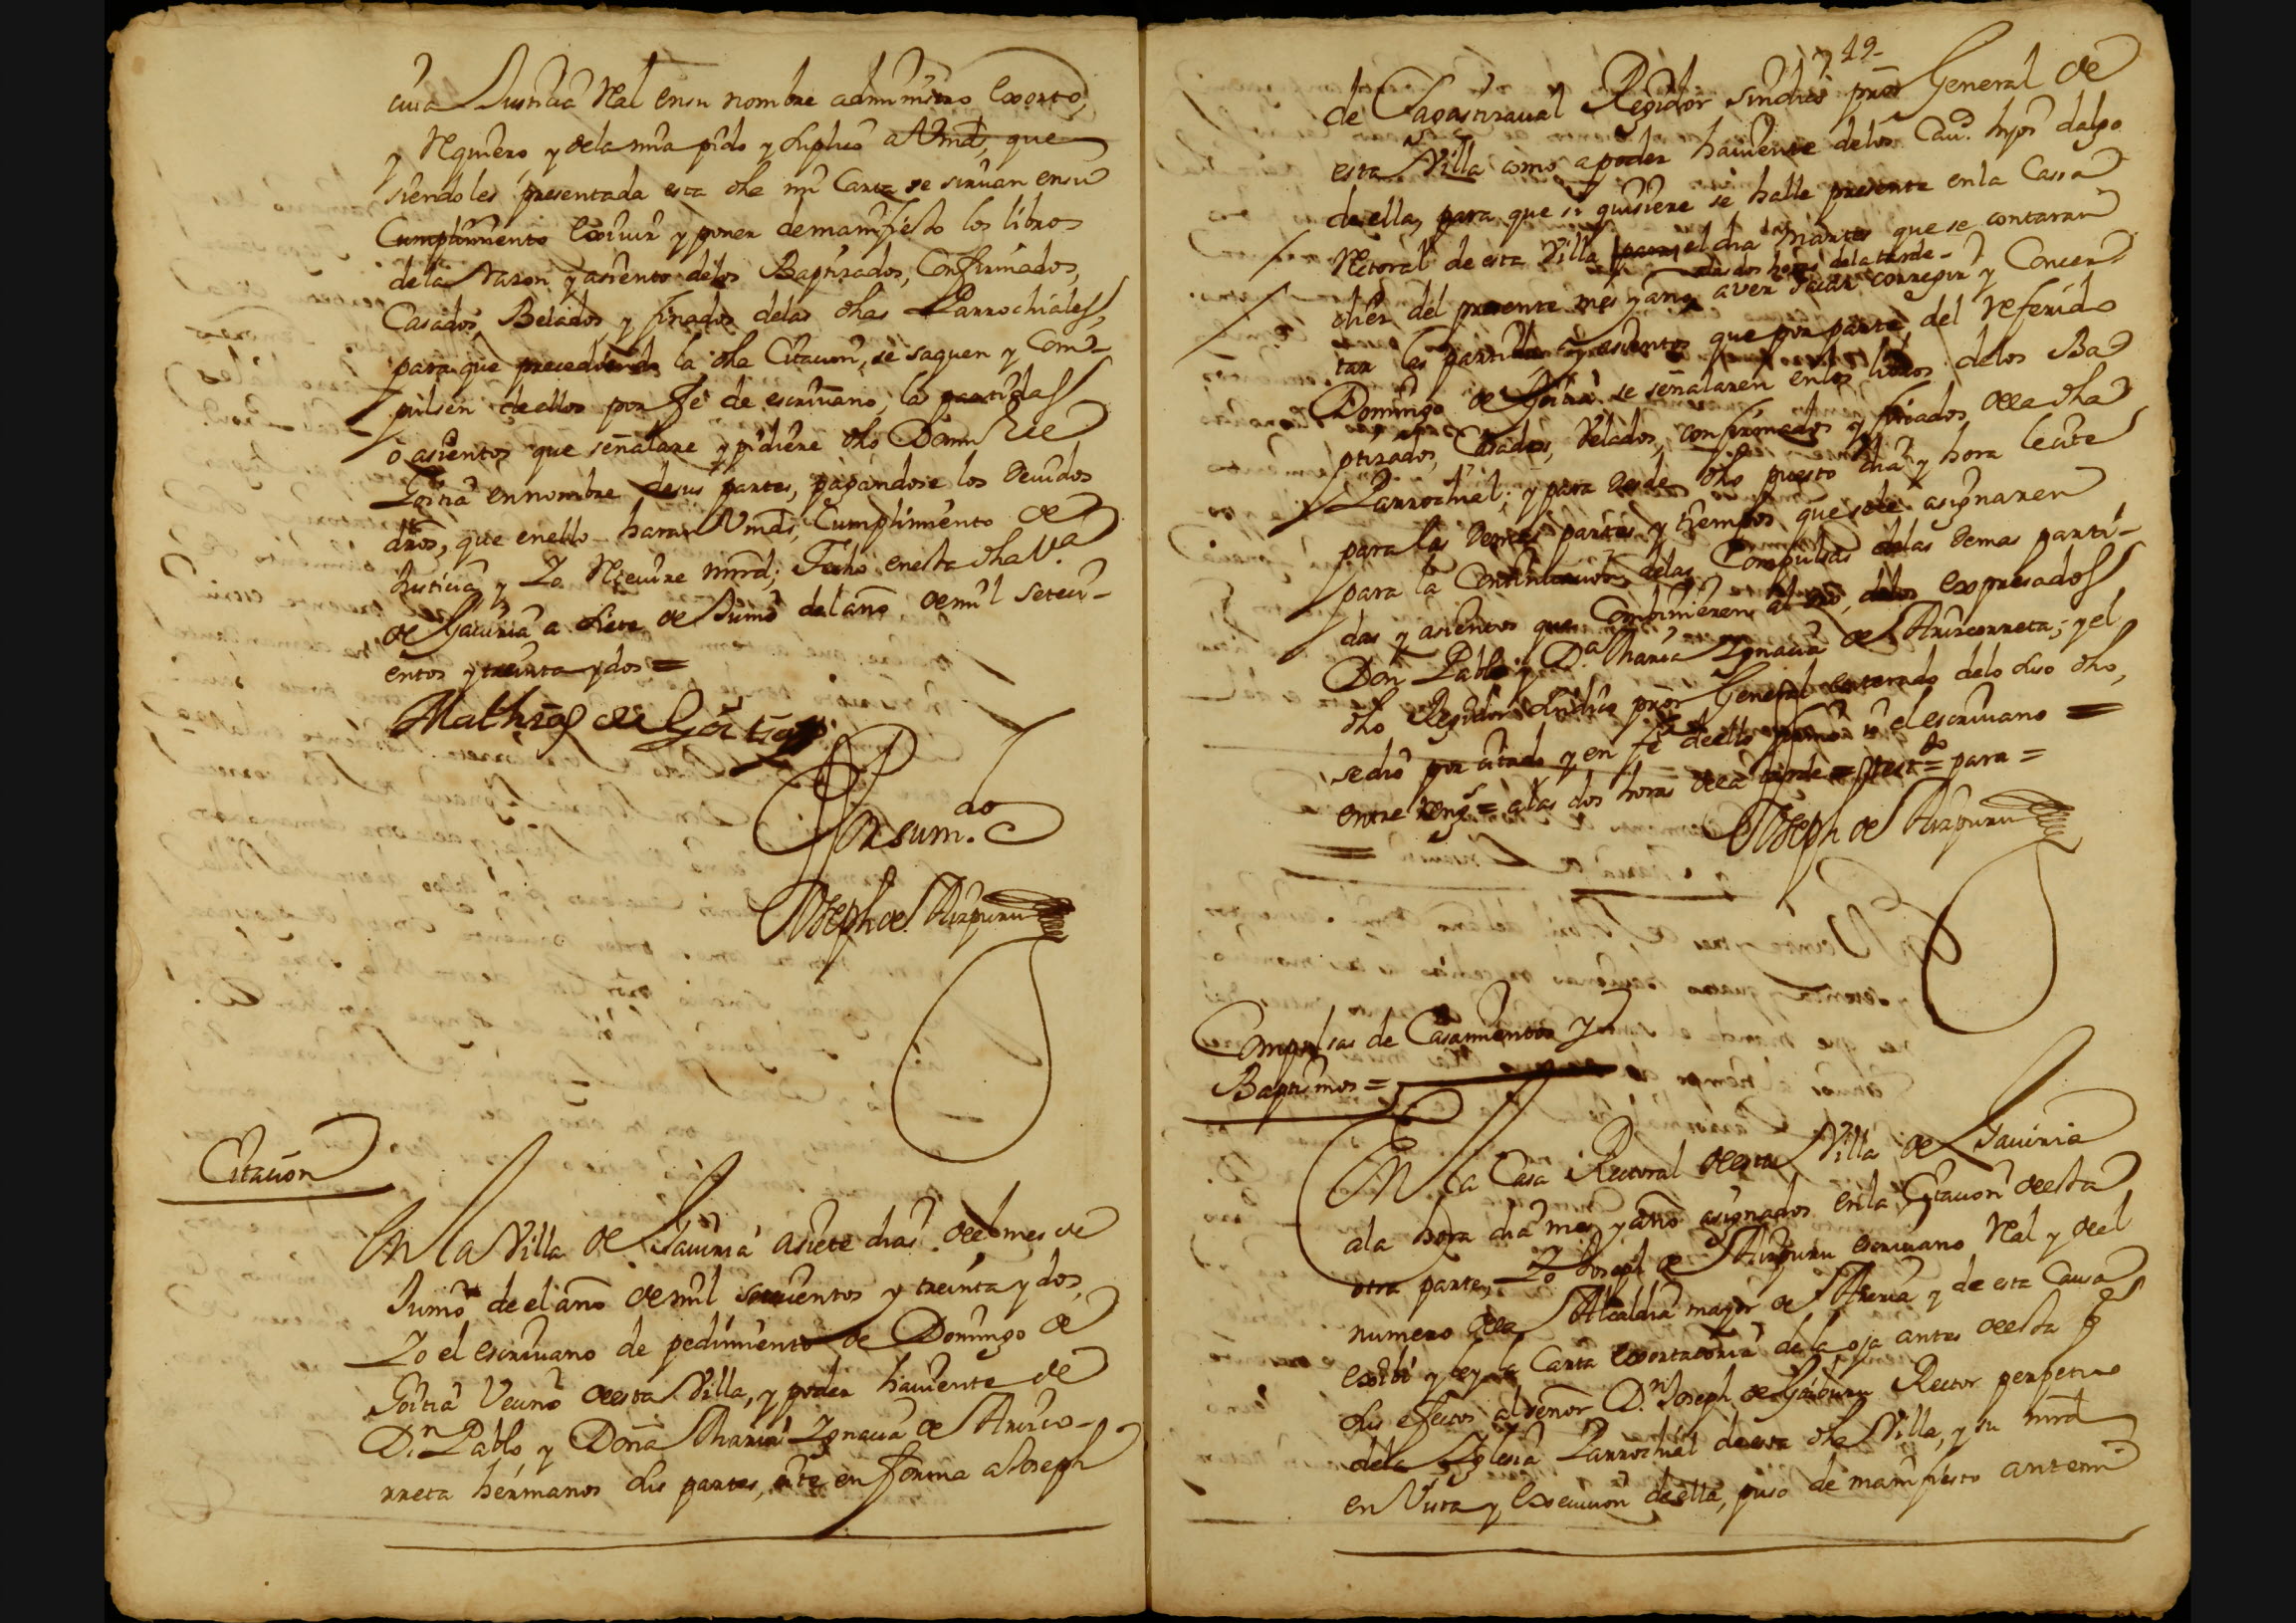 cuia Justicia Real en su nombre administro Exorto,
y Requiero y de la mia pido y suplico a Vmds, que
siendoles presentada esta dha mi Carta se siruan en su
Cumplimiento Exiuir y poner de manifiesto los libros
de la Razon y asiento de los Baptizados, Confirmados,
Casados, Belados, y finados de las dhas Parrochiales,
para que precediendo la dha Citacion, se saquen y Com-
pulsen de ellos por fe de escriuano, las partidas
o asientos que señalare y pidiere dho Domingo de
Goitia en nombre de sus partes, pagandose los deuidos
dros, que en ello haran Vmds, Cumplimiento de
Justicia, y Yo Reciuire mrd; Fecho en esta dha Va.
de Gauiria a siete de Junio del año de mil seteci-
entos y treinta y dos =
Mathias de Goitia
Por su mdo
Joseph de Aizpuru
Citacion
En la Villa de Gauiria a siete dias de el mes de
Junio de el año de mil setecientos y treinta y dos,
Yo el escriuano de pedimiento de Domingo de
Goitia Vecino de esta Villa, y poder hauiente de
Dn. Pablo, y Doña Maria Ygnacia de Arizco-
rreta hermanos sus partes, cite en forma a Joseph
49
de Sagastizaual Regidor sindico pror General de
esta Villa como apoder hauiente de los Cau.os hijos dalgo
de ella, para que si quisiere se halle presente en la Cassa
Retoral de esta Villa para el dia Martes que se contaran
a las dos horas de la tarde
diez del presente mes y año a ver sacar corregir y Concer-
tar las partidas y asientos que por parte del referido
Domingo de Goitia se señalaren en los libros de los Ba-
ptizados, Casados, Velados, confirmados y finados de la dha
Parrochial; y para desde dho puesto dia y hora le cite
para las demas partes y tiempos que se le asignaren
para la Continuacion de las Compulsas de las demas parti-
das y asientos que Combinieren al dro, de los expresados
Don Pablo y Da. Maria Ygnacia de Arizcorreta; y el
dho Regidor sindico pror General enterado de lo suso dho,
se dio por citado y en fe de ello firme io el escriuano =
entre rengs = a las dos horas de la tarde = test.do = para =
Joseph de Aizpuru
Compulsas de Casamientos y
Baptismos =
En la Casa Rectoral de esta Villa de Gauiria
a la hora dia mes y año asignados en la Citacion de esta
otra parte, Yo Joseph de Aizpuru escriuano Real y de el
numero de la Alcaldia mayor de Areria y de esta Causa
exibi y ley la Carta exortatoria de la oja antes de esta pa
sus efectos al señor D.n Joseph de Gaiburu Rector perpetuo
de la Yglesia Parrochial de esta dha Villa, y su mrd
en Vista y Execucion de ella, puso de manifiesto antemi